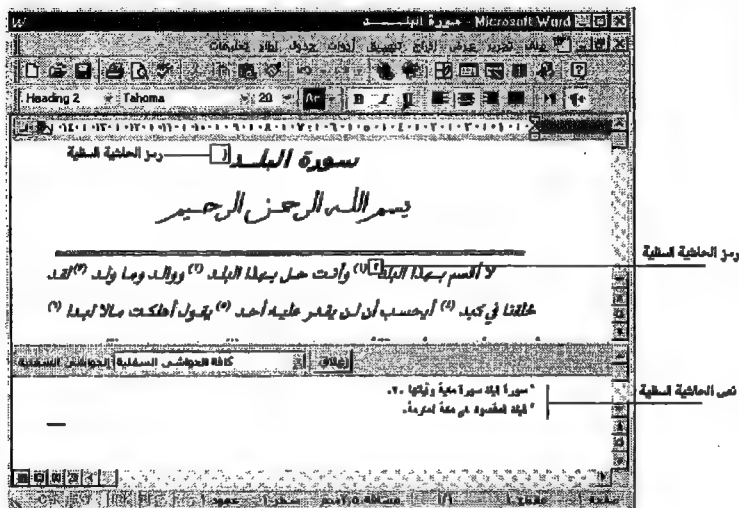 Microsoft Word - سورة البلـــد
ملف تحرير عرض إدراج تنسيق أدوات جدول إطار تعليمات
Heading 2 Tahoma 20 Ar B I U
رمز الحاشية السفلية
سورة البلـد
بسم اللـه الرحمـن الرحيـم
رمز الحاشية السفلية
لا أقسم بـهذا البلد (١) وأنـت حـل بـهذا البلـد (٢) ووالـد ومـا ولـد (٣) لقـد
خلقنا في كبد (٤) أيحسـب أن لـن يقـدر عليـه أحـد (٥) يقـول أهلكـت مـالا لبـدا (٦)
الحواشي السفلية كافة الحواشي السفلية إغلاق
نص الحاشية السفلية
سورة البلد سورة مكية وآياتها ٢٠.
البلد المقصود هي مكة المكرمة.